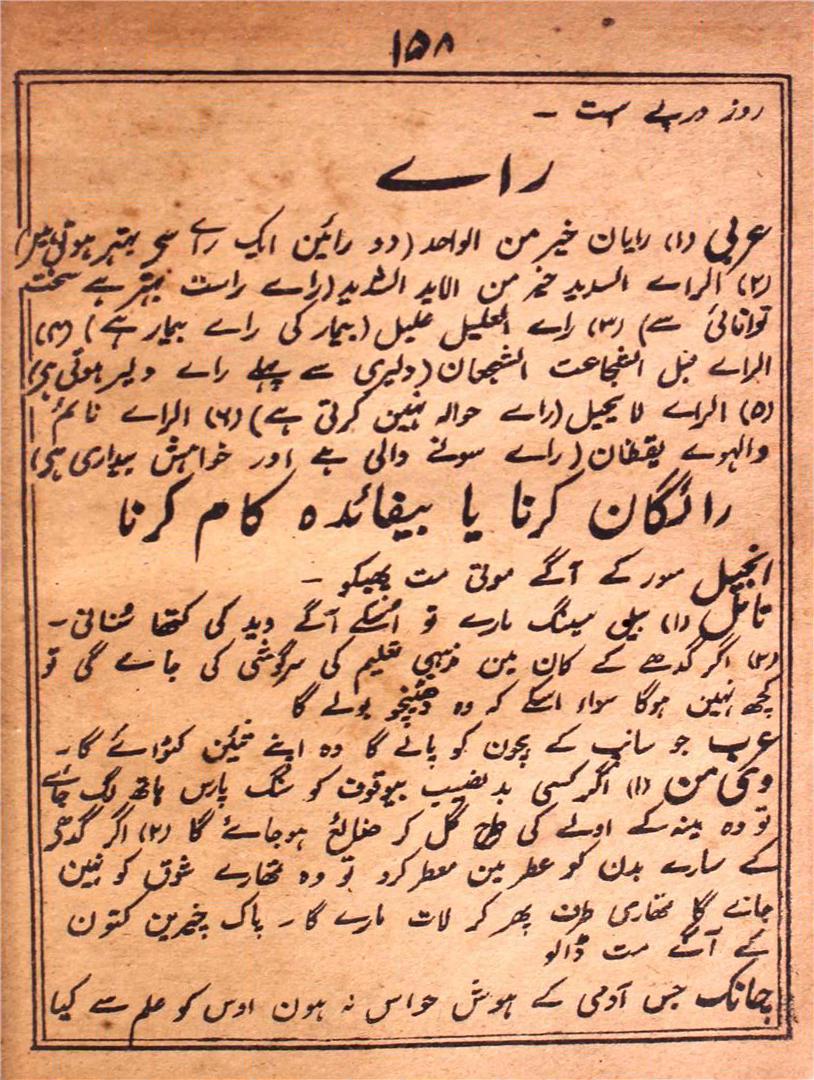 ۱۵۸
روز در پے است ۔
راے
عربی (۱) رایان خیر من الواحد (دو رائین ایک راے سے بہتر ہوتی ہیں)
(۲) الراے السدید خیر من الاید الشدید (راے راست بہتر ہے سخت
توانائی سے) (۳) راے العلیل علیل (بیمار کی راے بیمار ہے) (۴)
الراے قبل الشجاعت الشجعان (دلیری سے پہلے راے دلیر ہوتی ہی)
(۵) الراے لا یحیل (راے حوالہ نہین کرتی ہے) (۶) الراے نائمٌ
والہوے یقظان (راے سونے والی ہے اور خواہش بیداری ہی)
رائگان کرنا یا بیفائدہ کام کرنا
انجیل سور کے آگے موتی مت پھیکو ۔
تامل (۱) بیل سینگ مارے تو اُسکے آگے وید کی کتھا سُنانی ۔
(۲) اگر گدھے کے کان مین مذہبی تعلیم کی سرگوشی کی جاے گی تو
کچھ نہین ہوگا سواء اسکے کہ وہ ڈھینچو بولے گا
عرب جو سانپ کے بچون کو پالے گا وہ اپنے تئین کٹوائے گا ۔
ویمن (۱) اگر کسی بد نصیب بیوقوف کو سنگ پارس ہاتھ لگ جاے
تو وہ مینہ کے اولے کی طرح گل کر ضائع ہو جائے گا (۲) اگر گدھے
کے سارے بدن کو عطر مین معطر کرو تو وہ تمھارے شوق کو نہین
جانے گا تمھاری طرف پھر کر لات مارے گا ۔ پاک چیزین کتون
کے آگے مت ڈالو
چانک جس آدمی کے ہوش حواس نہ ہون اوس کو علم سے کیا